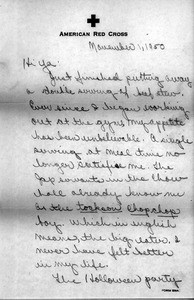 AMERICAN RED CROSS
November 1, 1950
Hi Ya:
Just finished putting away
a double serving of beef stew.
Ever since I began working
out at the gym my appetite
has been unbelievable. A single
serving at meal time no
longer satisfies me. The
Jap servants in the chow
hall already know me
as the Chopchop
boy which in english
means, the big eater. I
never have felt better
in my life.
The Halloween party